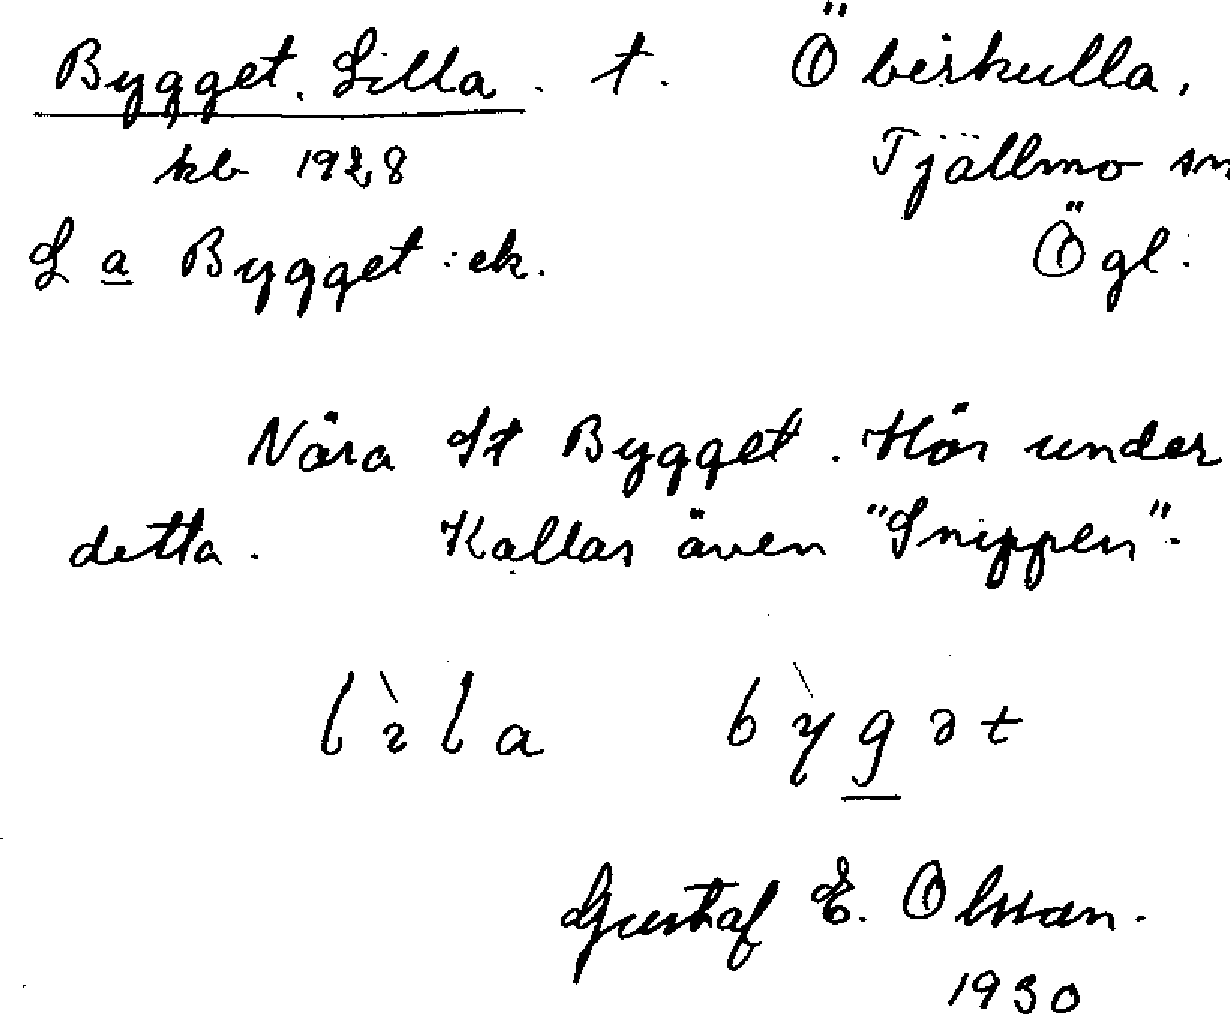 Bygget, Lilla. t. Ö birkulla,
kb 1928 Tjällmo sn
La Bygget: ek. Ögl.
Nära St Bygget. Hör under
detta. Kallas även "Snippen".
lìla bỳgət
Gustaf E. Olsson.
1930